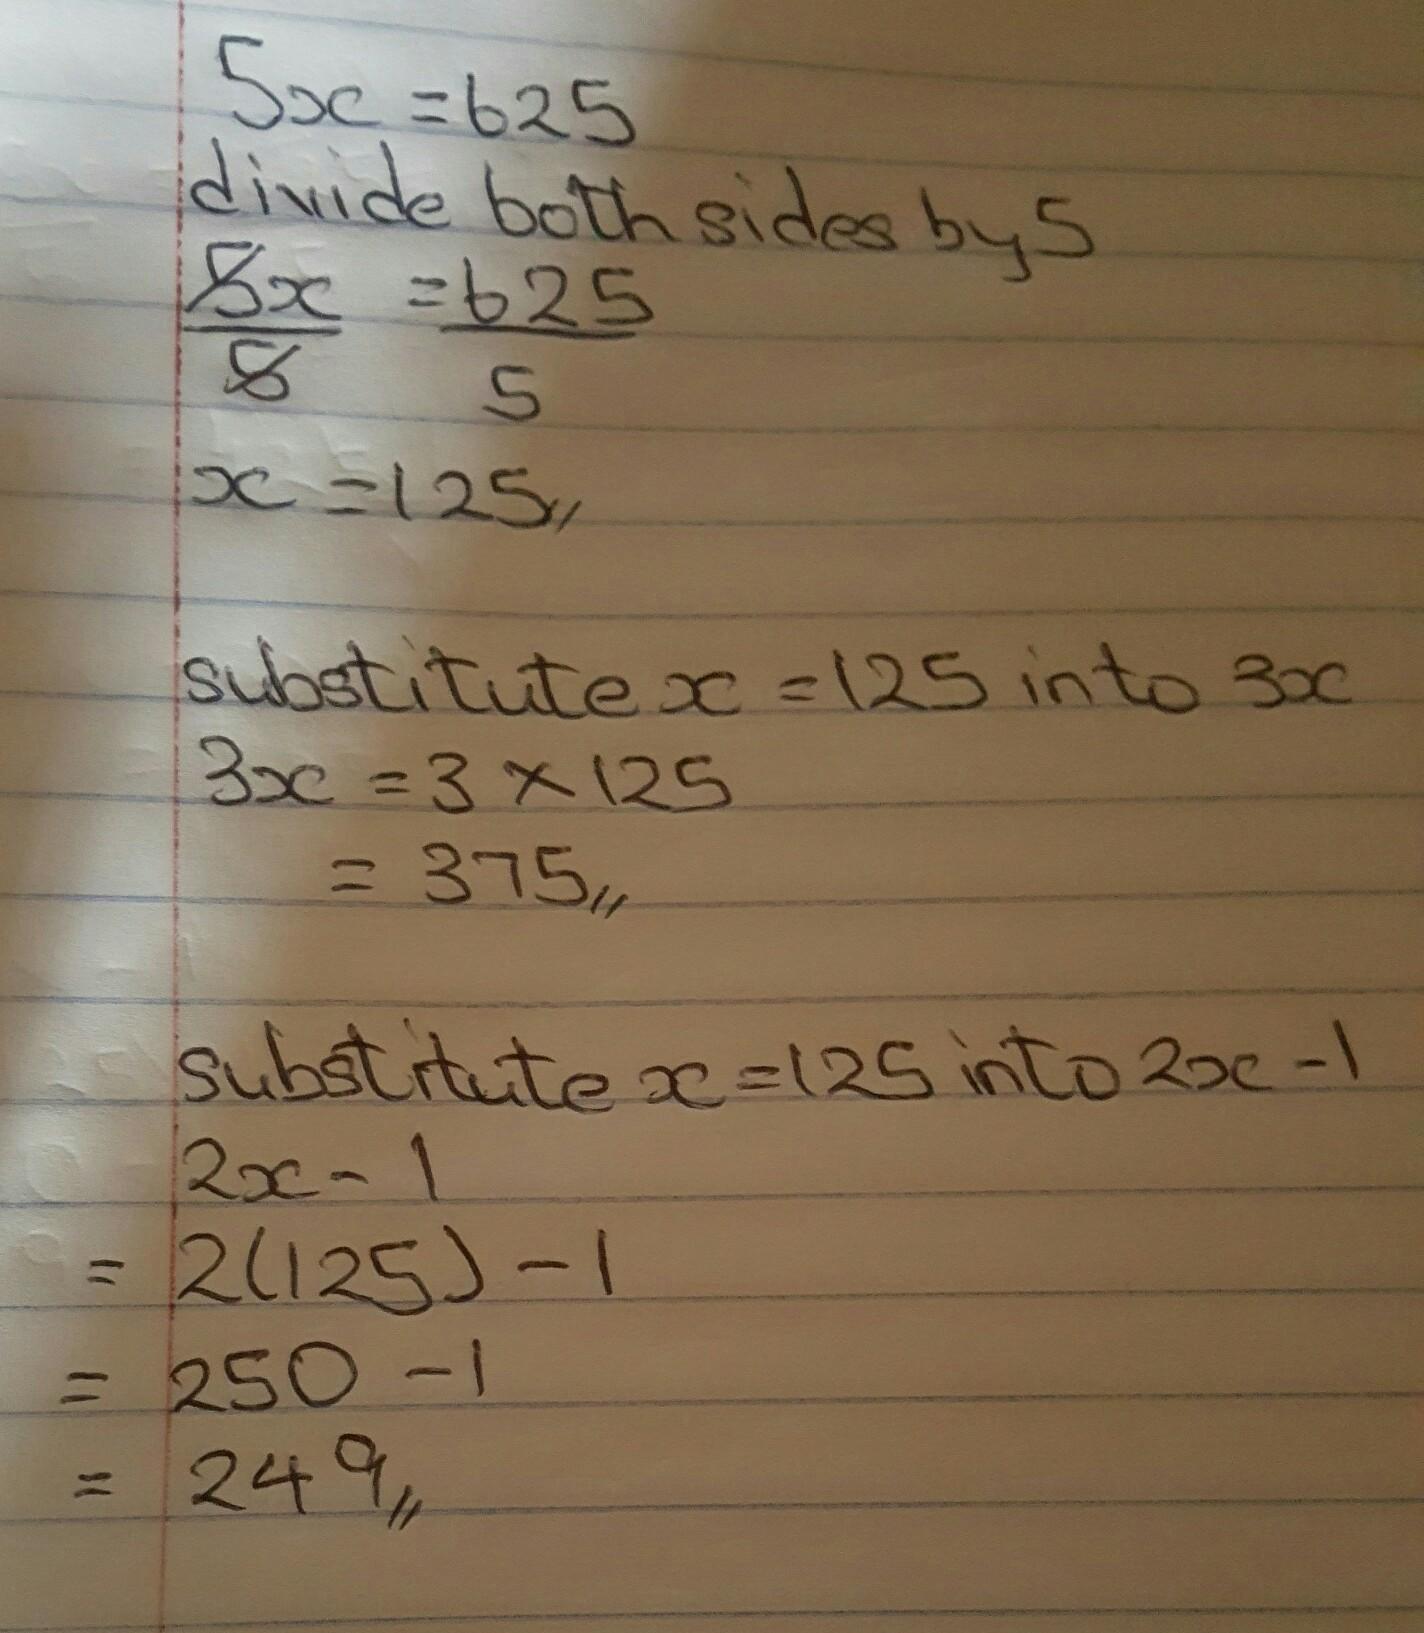 5x = 625
divide both sides by 5
5x = 625
5 5
x = 125,,
substitute x = 125 into 3x
3x = 3 × 125
= 375,,
substitute x = 125 into 2x - 1
2x - 1
= 2(125) - 1
= 250 - 1
= 249,,